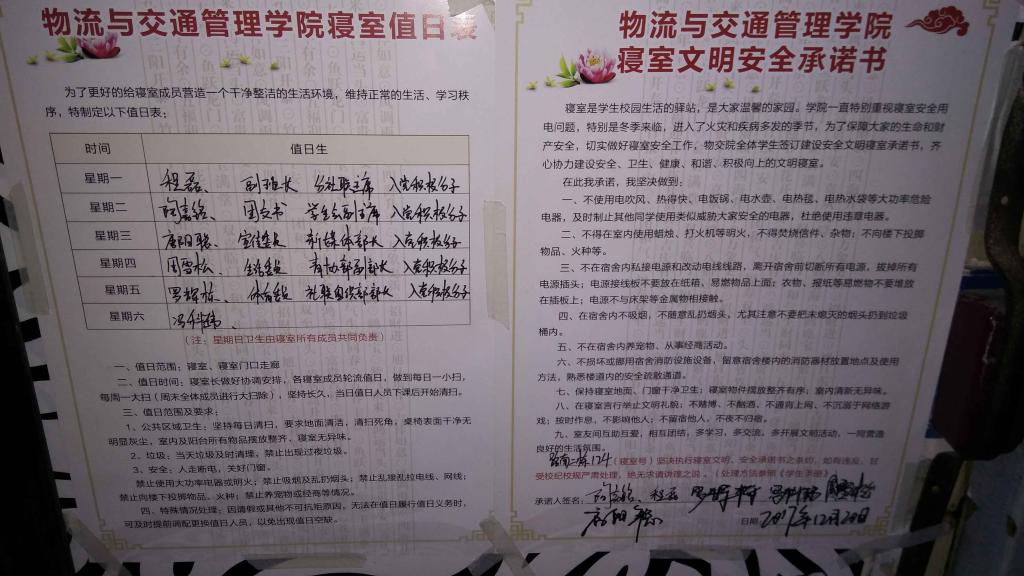 物流与交通管理学院寝室值日表
为了更好的给寝室成员营造一个干净整洁的生活环境，维持正常的生活、学习秩
序，特制定以下值日表：
时间 值日生
星期一 程磊、 副班长 入党积极分子
星期二 团支书 学生会副主席 入党积极分子
星期三 新媒体部长 入党积极分子
星期四 周雪松、 青协部副部长 入党积极分子
星期五 罗辉栋、 体育委员 入党积极分子
星期六
（注：星期日卫生由寝室所有成员共同负责）
一、值日范围：寝室、寝室门口走廊
二、值日时间：寝室长做好协调安排，各寝室成员轮流值日，做到每日一小扫，
每周一大扫（周末全体成员进行大扫除），坚持长久，当日值日人员下课后开始清扫。
三、值日范围及要求：
1、公共区域卫生：坚持每日清扫，要求地面清洁，清扫死角，桌椅表面干净无
明显灰尘，室内及阳台所有物品摆放整齐，寝室无异味。
2、垃圾：当天垃圾及时清理，禁止出现过夜垃圾。
3、安全：人走断电，关好门窗。
禁止使用大功率电器或明火；禁止吸烟及乱扔烟头；禁止乱接乱拉电线、网线；
禁止向楼下投掷物品、火种；禁止养宠物或经商等情况。
四、特殊情况处理：因请假或其他不可抗拒原因，无法在值日履行值日义务时，
可及时提前调配更换值日人员，以免出现值日空缺。
物流与交通管理学院
寝室文明安全承诺书
寝室是学生校园生活的驿站，是大家温馨的家园。学院一直特别重视寝室安全用
电问题，特别是冬季来临，进入了火灾和疾病多发的季节，为了保障大家的生命和财
产安全，切实做好寝室安全工作，物交院全体学生签订建设安全文明寝室承诺书，齐
心协力建设安全、卫生、健康、和谐、积极向上的文明寝室。
在此我承诺，我坚决做到：
一、不使用电吹风、热得快、电饭锅、电水壶、电热毯、电热水袋等大功率危险
电器，及时制止其他同学使用类似威胁大家安全的电器，杜绝使用违章电器。
二、不得在室内使用蜡烛、打火机等明火，不得焚烧信件、杂物；不向楼下投掷
物品、火种等。
三、不在宿舍内私接电源和改动电线线路，离开宿舍前切断所有电源，拔掉所有
电源插头；电源接线板不要放在纸箱、易燃物品上面；衣物、报纸等易燃物不要堆放
在插板上；电源不与床架等金属物相接触。
四、在宿舍内不吸烟，不随意乱扔烟头，尤其注意不要把未熄灭的烟头扔到垃圾
桶内。
五、不在宿舍内养宠物、从事经商活动。
六、不损坏或挪用宿舍消防设施设备，留意宿舍楼内的消防器材放置地点及使用
方法，熟悉楼道内的安全疏散通道。
七、保持寝室地面、门窗干净卫生；寝室物件摆放整齐有序；室内清新无异味。
八、在寝室言行举止文明礼貌；不赌博、不酗酒、不通宵上网、不沉溺于网络游
戏；按时作息，不影响他人；不留宿他人，不夜不归宿。
九、室友间互助互爱，相互团结，多学习，多交流，多开展文明活动，一同营造
良好的生活氛围。
124（寝室号）坚决执行寝室文明、安全承诺书之条约，如有违反，甘
受校纪校规严肃处理，绝无求请讲理之说。（处理方法参照《学生手册》）
承诺人签名： 程磊 罗辉栋 周雪松
日期：2017年12月20日